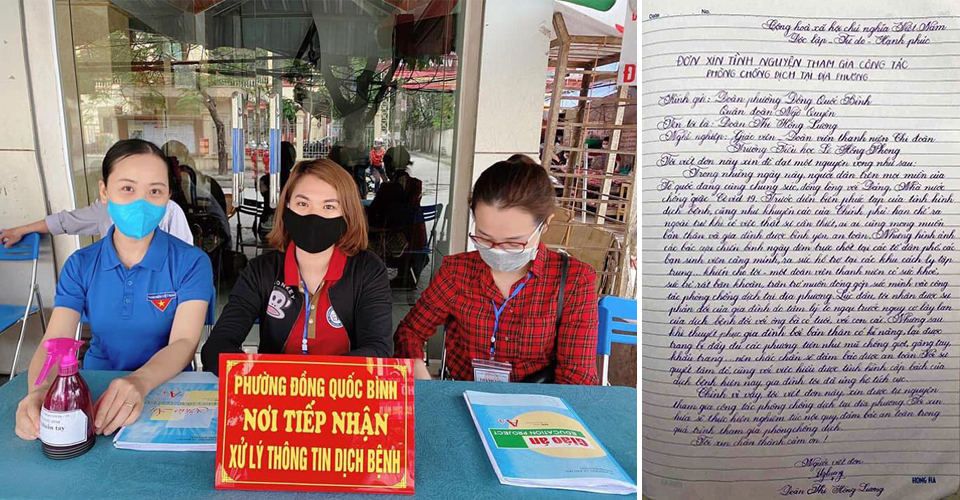 PHƯỜNG ĐỒNG QUỐC BÌNH
NƠI TIẾP NHẬN
XỬ LÝ THÔNG TIN DỊCH BỆNH
Giáo án
EDUCATION PROJECT
A4
Date No.
Cộng hoà xã hội chủ nghĩa Việt Nam
Độc lập - Tự do - Hạnh phúc
ĐƠN XIN TÌNH NGUYỆN THAM GIA CÔNG TÁC
PHÒNG CHỐNG DỊCH TẠI ĐỊA PHƯƠNG
Kính gửi: Đoàn phường Đồng Quốc Bình
Quận đoàn Ngô Quyền
Tên tôi là: Đoàn Thị Hồng Lương
Nghề nghiệp: Giáo viên - Đoàn viên thanh niên Chi đoàn
Trường Tiểu học Lê Hồng Phong
Tôi viết đơn này xin đề đạt một nguyện vọng như sau:
Trong những ngày này, người dân trên mọi miền của
Tổ quốc đang cùng chung sức, đồng lòng với Đảng, Nhà nước
chống giặc Covid 19. Trước diễn biến phức tạp của tình hình
dịch bệnh, cũng như khuyến cáo của Chính phủ: hạn chế ra
ngoài trừ khi có việc thật sự cần thiết, ai ai cũng mong muốn
bản thân và gia đình được bình yên, an toàn. Những hình ảnh
các bác cựu chiến binh ngày đêm trực chốt tại các tổ dân phố, các
bạn sinh viên cùng mình, ra sức hỗ trợ tại các khu cách ly tập
trung... khiến cho tôi - một đoàn viên thanh niên có sức khoẻ,
sức trẻ rất băn khoăn, trăn trở muốn đóng góp sức mình với công
tác phòng chống dịch tại địa phương. Lúc đầu, tôi nhận được sự
phản đối của gia đình do tâm lý lo ngại trước nguy cơ lây lan
của dịch bệnh đối với ông bà có tuổi, với con cái. Nhưng sau
khi thuyết phục gia đình bởi bản thân có kĩ năng, lại được
trang bị đầy đủ các phương tiện như mũ chống giọt, găng tay,
khẩu trang... nên chắc chắn sẽ đảm bảo được an toàn. Tôi sự
quyết tâm đó, cùng với việc hiểu được tình hình cấp bách của
dịch bệnh hiện nay, gia đình tôi đã ủng hộ tích cực.
Chính vì vậy, tôi viết đơn này xin được tự nguyện
tham gia công tác phòng chống dịch tại địa phương. Tôi xin
hứa sẽ thực hiện nghiêm túc mọi quy định đảm bảo an toàn trong
quá trình tham gia phòng chống dịch.
Tôi xin chân thành cảm ơn!
Người viết đơn
Đoàn Thị Hồng Lương
HỒNG HÀ